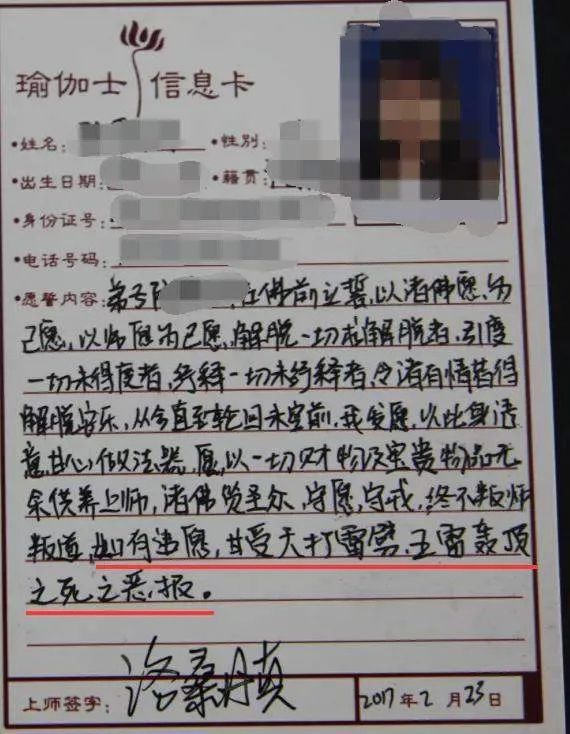 瑜伽士 信息卡
•姓名: •性别:
•出生日期: •籍贯:
•身份证号:
•电话号码:
•愿誓内容: 弟子 在佛前立誓,以诸佛愿为
己愿,以师愿为己愿,解脱一切未解脱者,引度
一切未得度者,绎释一切未绎释者,令诸有情皆得
解脱安乐,从今直至轮回未空前,我发愿,以此身语
意,甘心做法器,愿以一切财物及宝贵物品无
余供养上师,诸佛 圣尔,守愿,守戒,终不叛师
叛道,如有违愿,甘受天打雷劈,五雷轰顶
之死之恶报。
上师签字: 洛桑丹真 2017年2月23日